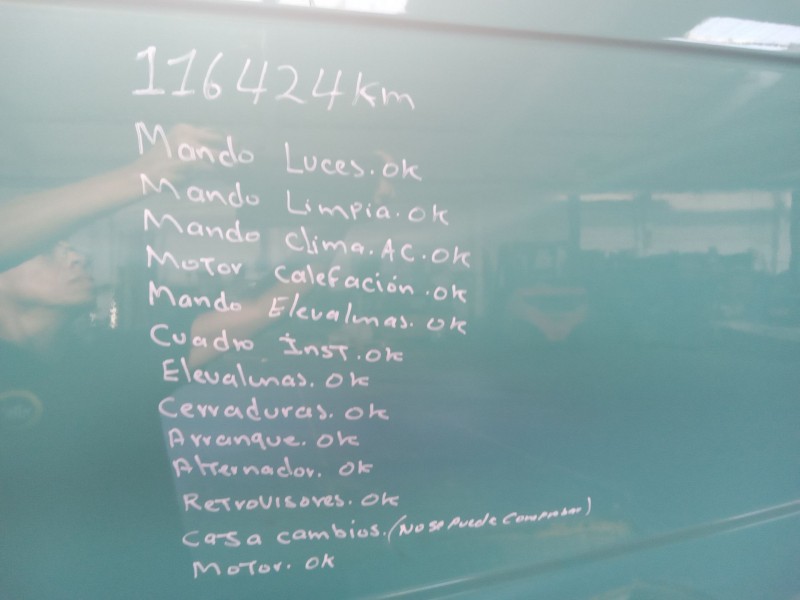 116424km
Mando Luces.ok
Mando Limpia.ok
Mando clima.AC.ok
Motor calefación.ok
Mando Elevalunas.ok
Cuadro Inst.ok
Elevalunas. ok
Cerraduras. ok
Arranque. ok
Alternador. ok
Retrovisores. ok
casa cambios.(No se puede comprobar)
Motor. ok